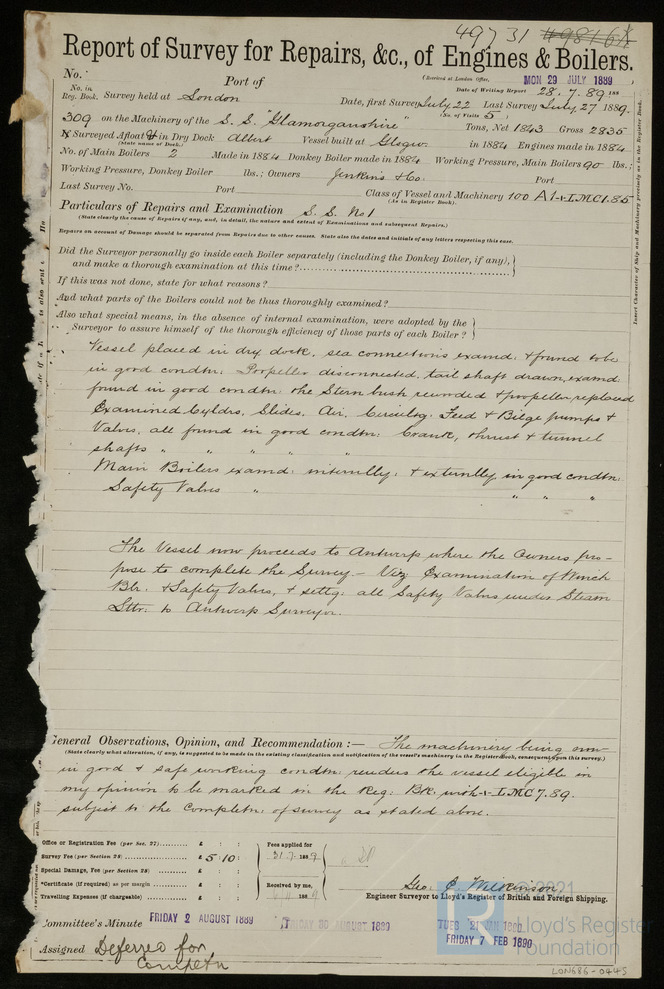 49731 49816
Report of Survey for Repairs, &c., of Engines & Boilers.
(Received at London Office, MON 29 JULY 1889
No. Port of
Date of Writing Report 28.7.89 188
No. in Reg. Book. Survey held at London Date, first Survey July 22 Last Survey July 27 1889.
(No. of Visits 5)
309 on the Machinery of the S.S. "Glamorganshire" Tons, Net 1843 Gross 2835
Surveyed Afloat & in Dry Dock Albert Vessel built at Glasgw. in 1884 Engines made in 1884
(State name of Dock.)
No. of Main Boilers 2 Made in 1884 Donkey Boiler made in 1884 Working Pressure, Main Boilers 90 lbs.;
Working Pressure, Donkey Boiler lbs.; Owners Jenkins & Co. Port
Last Survey No. Port Class of Vessel and Machinery 100 A1 + LMC 1.85
(As in Register Book).
Particulars of Repairs and Examination S.S. No 1
(State clearly the cause of Repairs if any, and, in detail, the nature and extent of Examinations and subsequent Repairs.)
Repairs on account of Damage should be separated from Repairs due to other causes. State also the dates and initials of any letters respecting this case.
Did the Surveyor personally go inside each Boiler separately (including the Donkey Boiler, if any),
and make a thorough examination at this time?
If this was not done, state for what reasons?
And what parts of the Boilers could not be thus thoroughly examined?
Also what special means, in the absence of internal examination, were adopted by the
Surveyor to assure himself of the thorough efficiency of those parts of each Boiler?
Vessel placed in dry dock, sea connections examd: & found to be
in good condtn: Propeller disconnected, tail shaft drawn, examd:
found in good condtn: the Stern bush rewooded & propeller replaced
Examined Cyldrs, Slides, Air, Circulatg: Feed & Bilge pumps &
Valves, all found in good condtn: Crank, thrust & tunnel
shafts " " " " "
Main Boilers examd: internlly: & externlly in good condtn:
Safety Valves " " " "
The Vessel now proceeds to Antwerp where the Owners pro-
pose to complete the Survey - Viz Examination of Winch
Blr. & Safety Valves, & settg: all Safety Valves under Steam
Lttr. to Antwerp Surveyor.
General Observations, Opinion, and Recommendation :— The machinery being now
(State clearly what alteration, if any, is suggested to be made in the existing classification and notification of the vessel's machinery in the Register Book, consequent upon this survey.)
in good & safe working condtn: renders the vessel eligible in
my opinion to be marked in the Reg: Bk: with + LMC 7.89.
subject to the completn: of survey as stated above.
Office or Registration Fee (per Sec. 27) £ : :
Survey Fee (per Section 28) £ 5 : 10 :
Special Damage, Fee (per Section 28) £ : :
Certificate (if required) as per margin £ : :
Travelling Expenses (if chargeable) £ : :
Fees applied for
31.7.1889
Received by me,
188
Geo. C. Wilkinson
Engineer Surveyor to Lloyd's Register of British and Foreign Shipping.
Committee's Minute FRIDAY 2 AUGUST 1889 FRIDAY 30 AUGUST 1889 TUES 21 JAN 1890
FRIDAY 7 FEB 1890
Assigned Deferred for
Completn
© 2021
Lloyd's Register
Foundation
LON686-0445
Insert Character of Ship and Machinery precisely as in the Register Book.